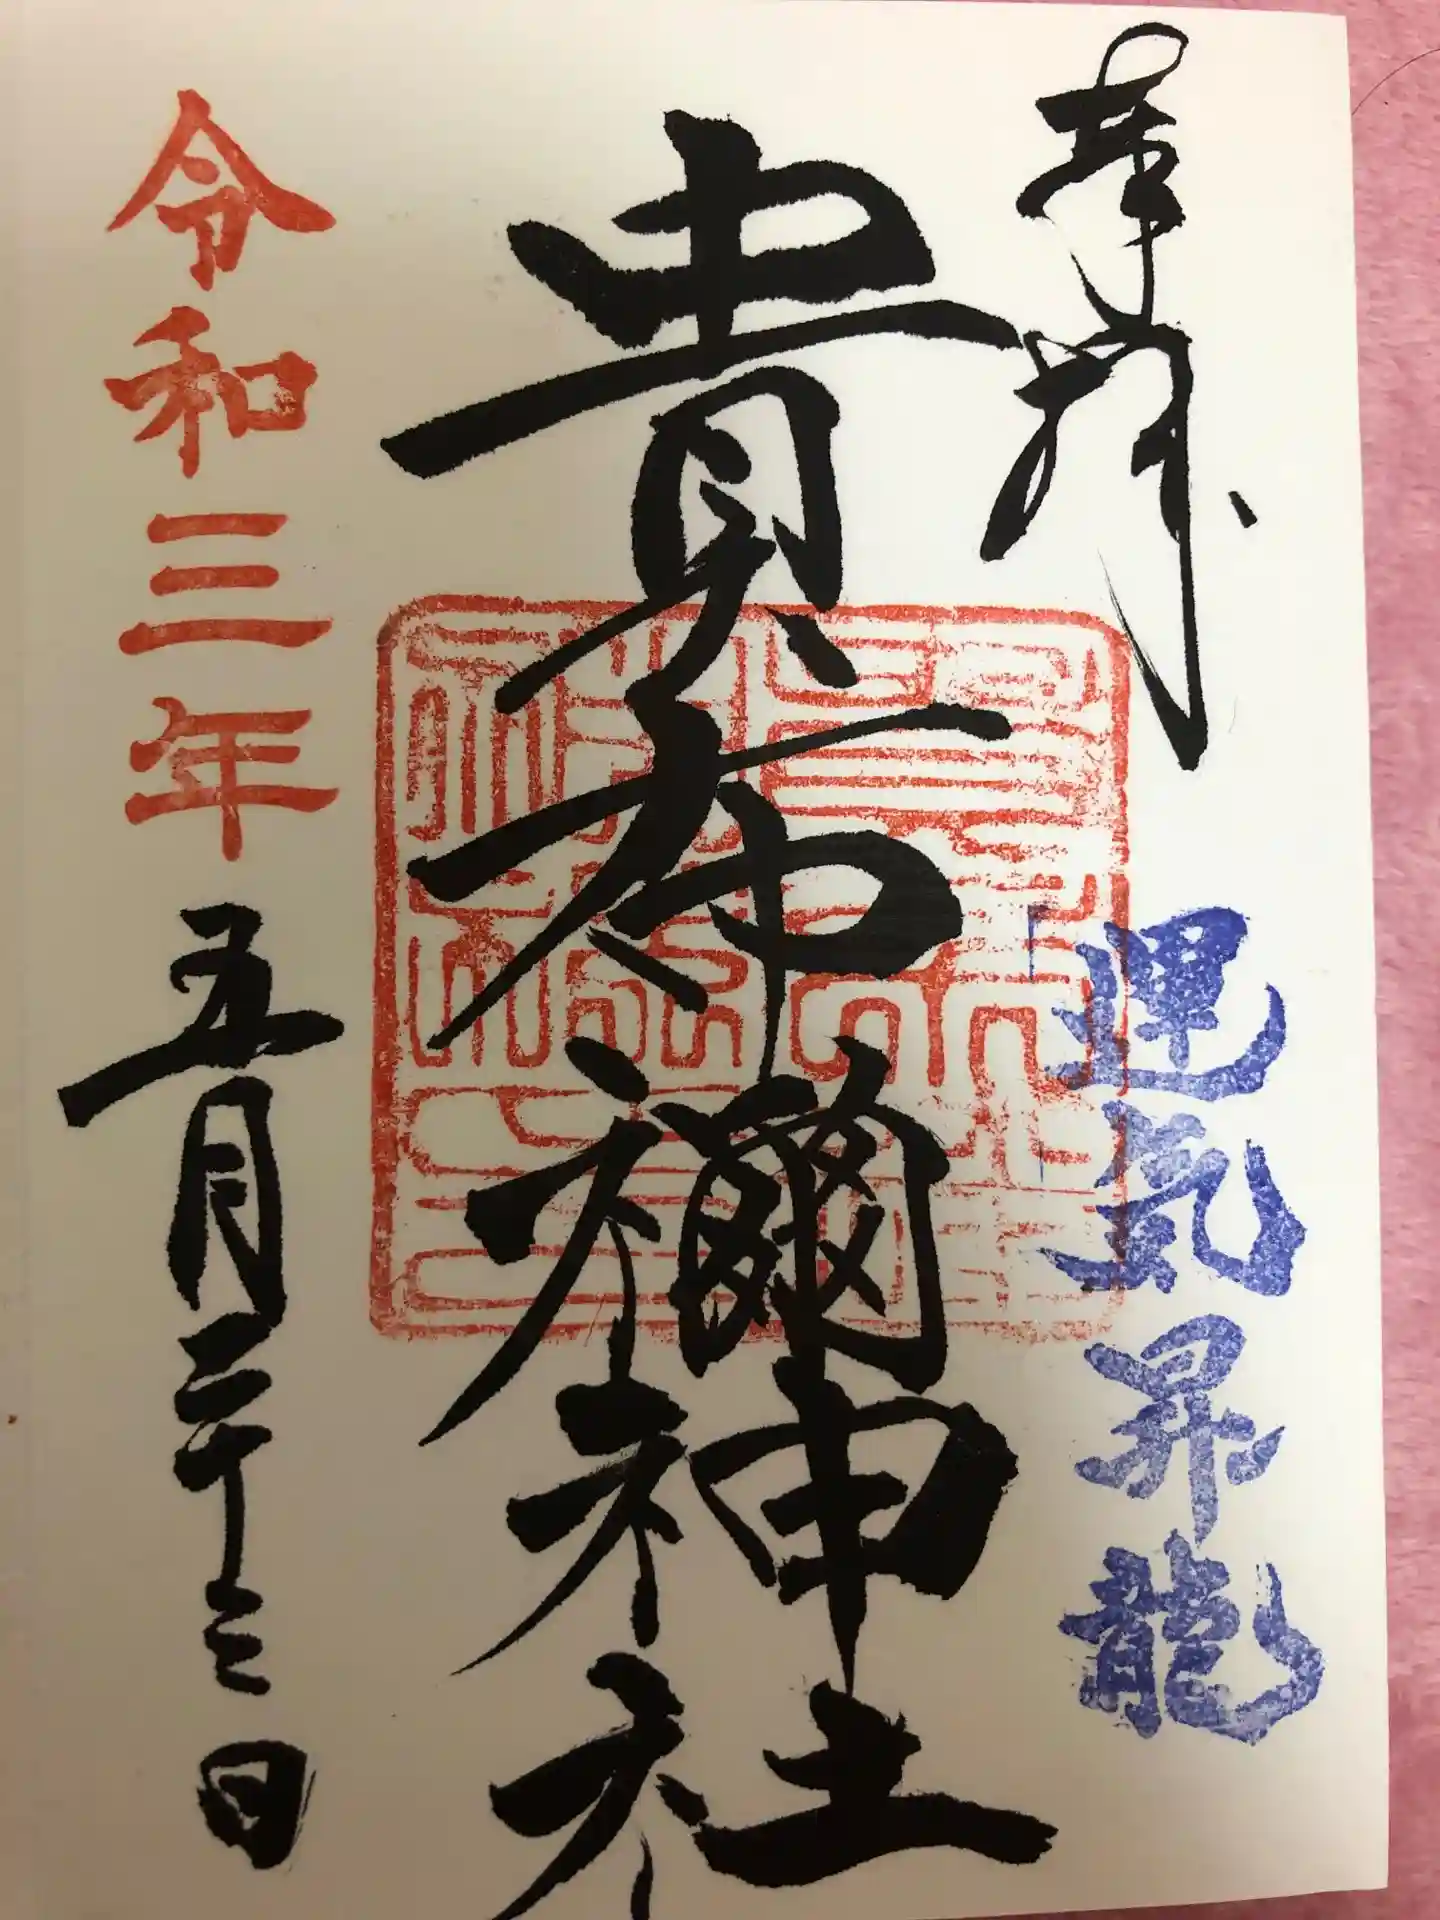 奉拝
運気昇龍
貴布禰神社
令和三年五月二十三日